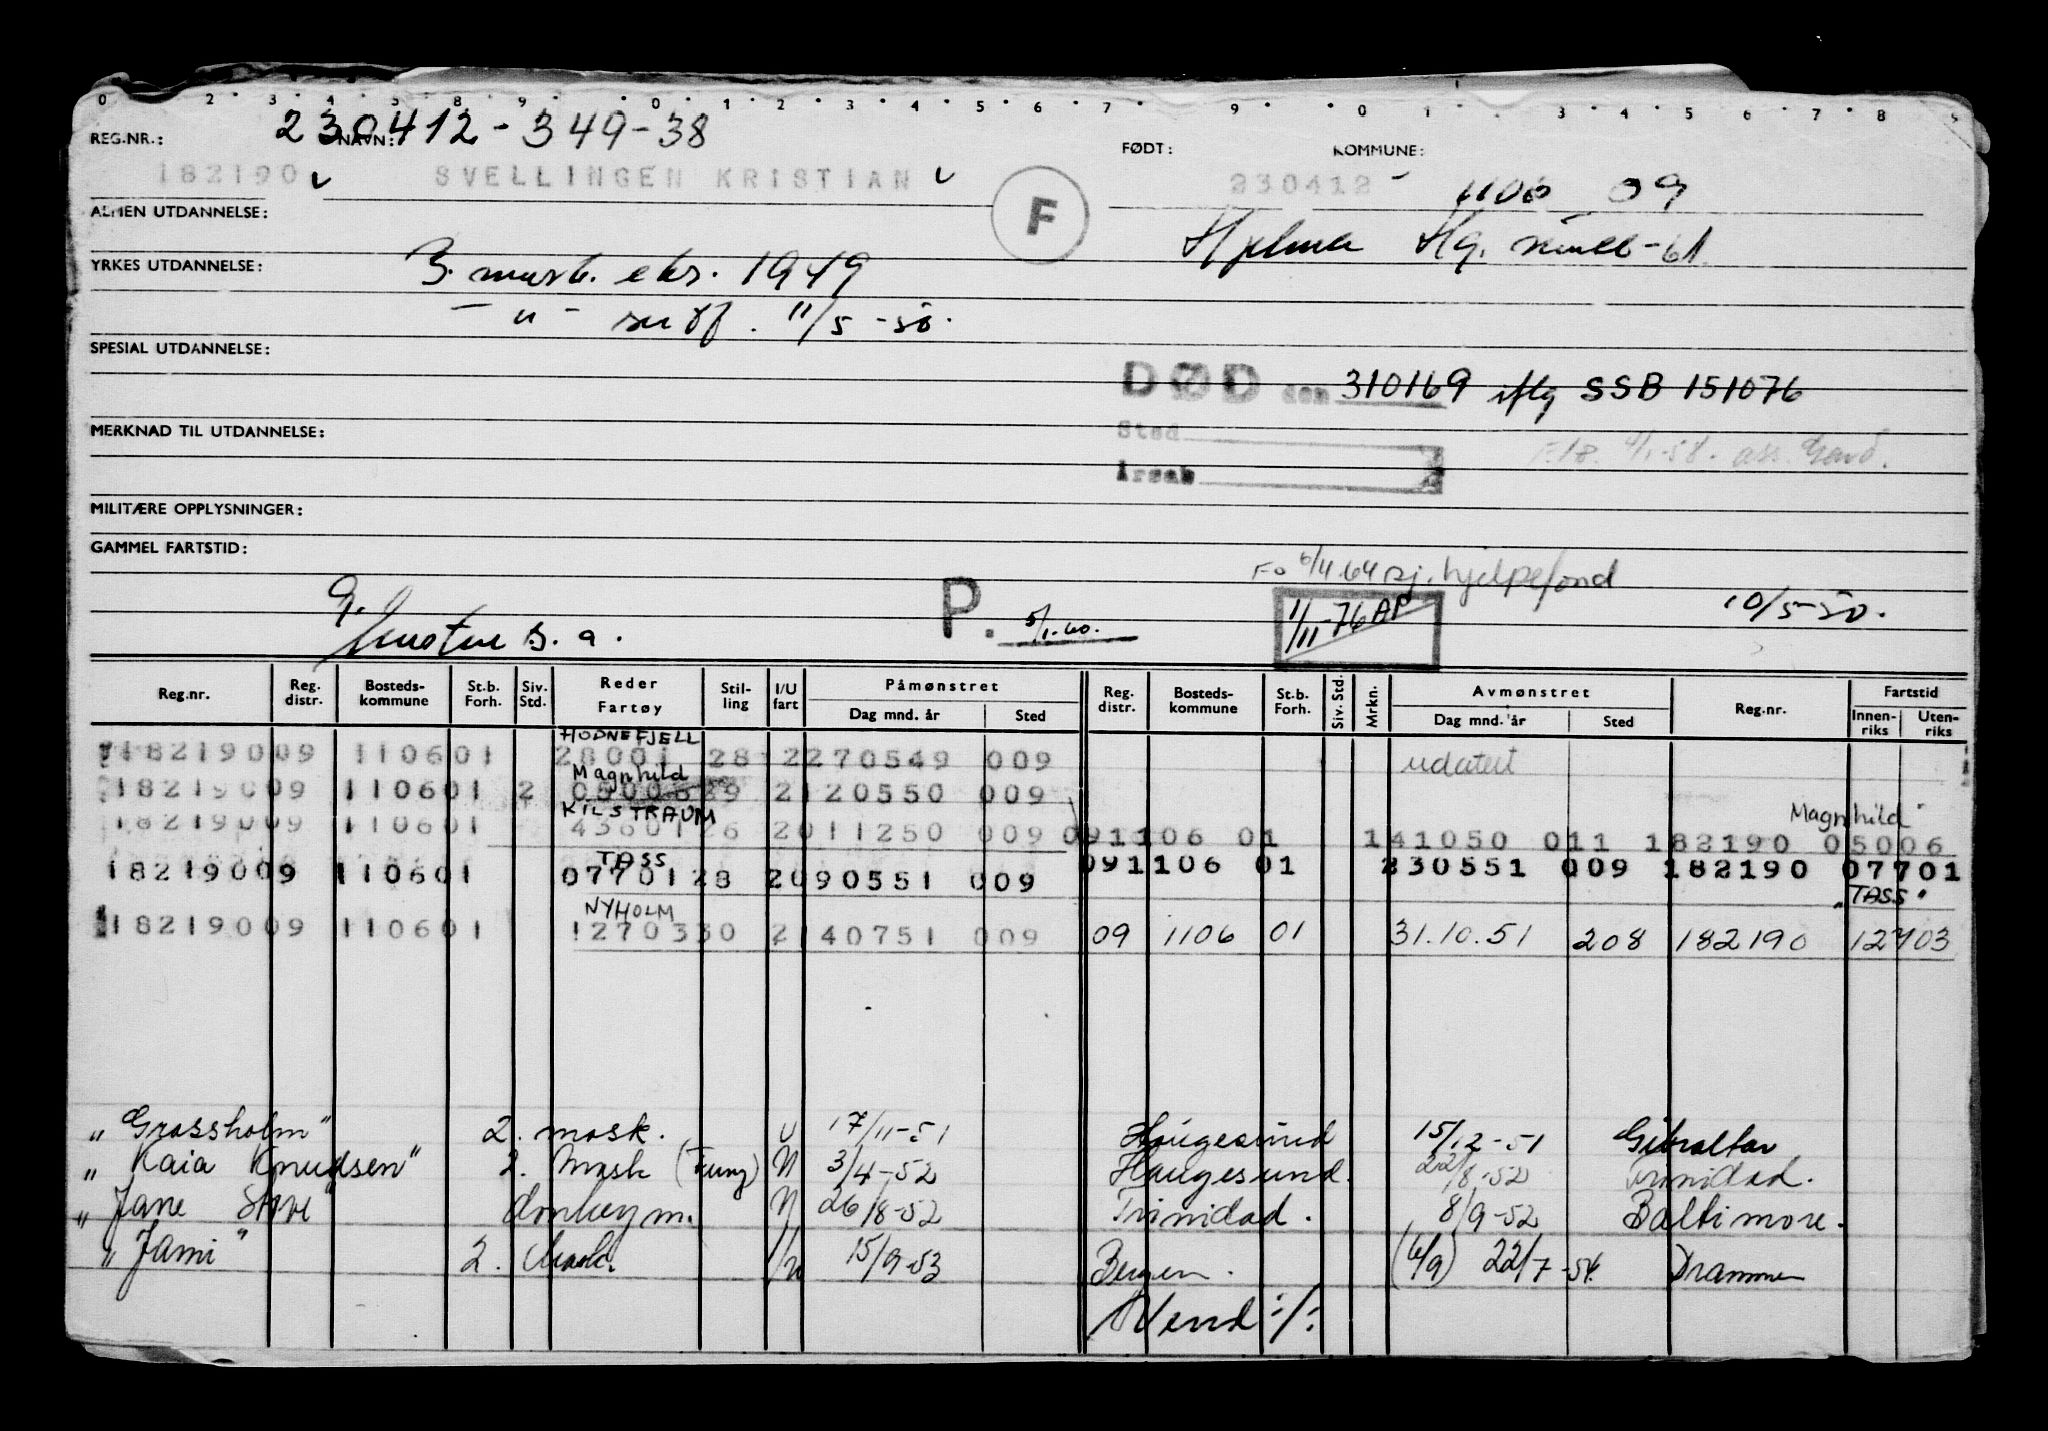 0 2 3 4 5 8 9 0 1 2 3 4 5 6 7 9 0 1 3 4 5 6 7 8 9
REG.NR.: NAVN: 230412-349-38 FØDT: KOMMUNE:
182190 SVELLINGEN KRISTIAN F 230412 1106 09
ALMEN UTDANNELSE:
YRKES UTDANNELSE: 3. mask. eks. 1949
- " - 11/5-50.
SPESIAL UTDANNELSE:
DØD den 310169 iflg SSB 151076
Sted
MERKNAD TIL UTDANNELSE:
Årsak
MILITÆRE OPPLYSNINGER:
GAMMEL FARTSTID:
Fo 6/4.64 sj. hjelpefond
P. 5/1-60. 1/11-76 AP 10/5-50.
s. a.
Reg.nr. Reg. distr. Bosteds-kommune St.b. Forh. Siv. Std. Reder Fartøy Stil-ling I/U fart Påmønstret Dag mnd. år Sted Reg. distr. Bosteds-kommune St.b. Forh. Siv. Std. Mrkn. Avmønstret Dag mnd. år Sted Reg.nr. Fartstid Innen-riks Uten-riks
HODNEFJELL
18219009 110601 28001 28 2270549 009 udatert
Magnhild
18219009 110601 2 29 2120550 009
KILSTRAUM Magnhild"
18219009 110601 43601 26 2011250 009 091106 01 141050 011 182190 05006
TASS
18219009 110601 07701 28 2090551 009 091106 01 230551 009 182190 07701
NYHOLM "TASS"
18219009 110601 1270330 2140751 009 09 1106 01 31.10.51 208 182190 12703
"Grassholm" 2. mask. U 17/11-51 Haugesund 15/12-51 Gibraltar
"Kaia Knudsen" 2. Mask (Fung) N 3/4-52 Haugesund. 22/8-52 Trinidad.
"Jane Stove" donkeym. N 26/8-52 Trinidad. 8/9-52 Baltimore.
"Jami" 2. Mask. 15/9-53 Bergen. (6/9) 22/7-54. Drammen
Vend :/: